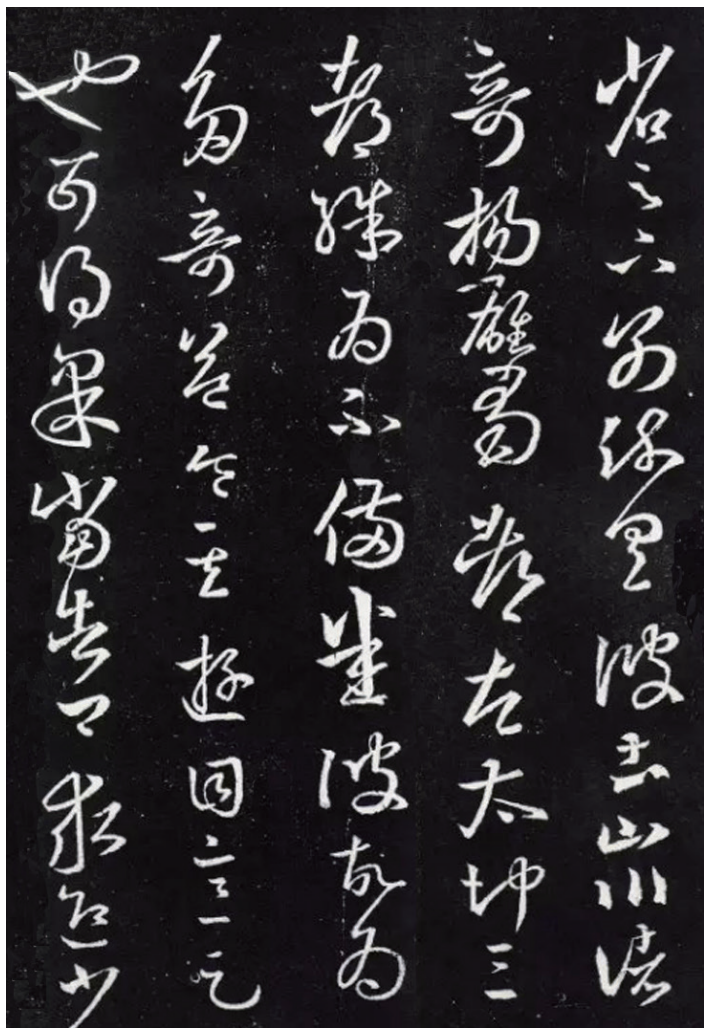 省足下別疏具彼土山川諸
奇楊雄蜀都左太沖三
都殊為不備悉彼故為
多奇益令其遊目意足
也可得果當告卿求迎少